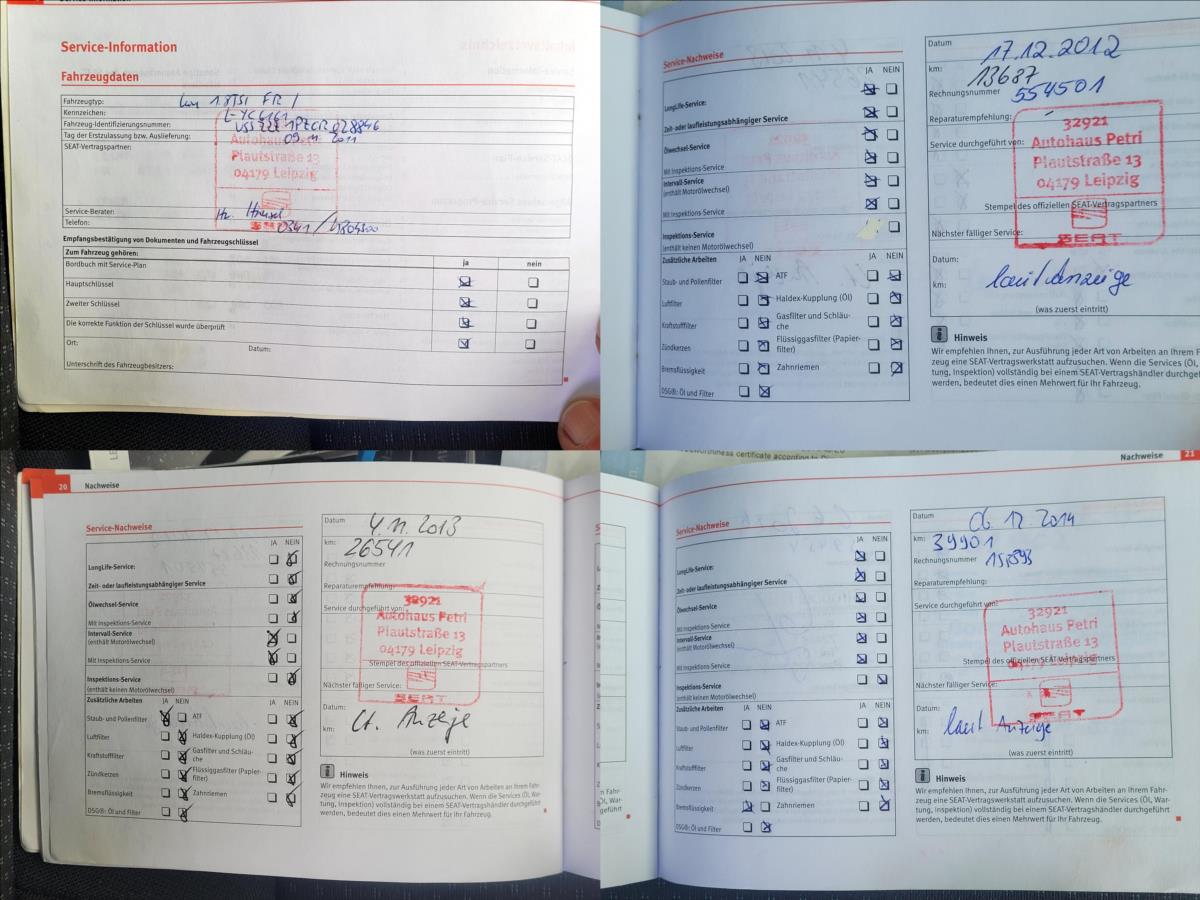 Service-Information
Fahrzeugdaten
Fahrzeugtyp: Leon 1.8TSI FR /
Kennzeichen:
Fahrzeug-Identifizierungsnummer:
Tag der Erstzulassung bzw. Auslieferung: 09.11.2011
SEAT-Vertragspartner:
Autohaus Petri
Plautstraße 13
04179 Leipzig
SEAT
Service-Berater: Hr.
Telefon: 0341/
Empfangsbestätigung von Dokumenten und Fahrzeugschlüssel
Zum Fahrzeug gehören: ja nein
Bordbuch mit Service-Plan
Hauptschlüssel
Zweiter Schlüssel
Die korrekte Funktion der Schlüssel wurde überprüft
Ort: Datum:
Unterschrift des Fahrzeugbesitzers:
Service-Nachweise
JA NEIN
LongLife-Service:
Zeit- oder laufleistungsabhängiger Service
Ölwechsel-Service
Mit Inspektions-Service
Intervall-Service
(enthält Motorölwechsel)
Mit Inspektions-Service
Inspektions-Service
(enthält keinen Motorölwechsel)
Zusätzliche Arbeiten JA NEIN JA NEIN
Staub- und Pollenfilter ATF
Luftfilter Haldex-Kupplung (Öl)
Kraftstofffilter Gasfilter und Schläu-
che
Zündkerzen Flüssiggasfilter (Papier-
filter)
Bremsflüssigkeit Zahnriemen
DSG®: Öl und Filter
Datum 17.12.2012
km: 13687
Rechnungsnummer 554501
Reparaturempfehlung:
Service durchgeführt von:
32921
Autohaus Petri
Plautstraße 13
04179 Leipzig
Stempel des offiziellen SEAT-Vertragspartners
SEAT
Nächster fälliger Service:
Datum:
km: laut Anzeige
(was zuerst eintritt)
Hinweis
Wir empfehlen Ihnen, zur Ausführung jeder Art von Arbeiten an Ihrem F
zeug eine SEAT-Vertragswerkstatt aufzusuchen. Wenn die Services (Öl,
tung, Inspektion) vollständig bei einem SEAT-Vertragshändler durchgeführ
werden, bedeutet dies einen Mehrwert für Ihr Fahrzeug.
20 Nachweise
Service-Nachweise
JA NEIN
LongLife-Service:
Zeit- oder laufleistungsabhängiger Service
Ölwechsel-Service
Mit Inspektions-Service
Intervall-Service
(enthält Motorölwechsel)
Mit Inspektions-Service
Inspektions-Service
(enthält keinen Motorölwechsel)
Zusätzliche Arbeiten JA NEIN JA NEIN
Staub- und Pollenfilter ATF
Luftfilter Haldex-Kupplung (Öl)
Kraftstofffilter Gasfilter und Schläu-
che
Zündkerzen Flüssiggasfilter (Papier-
filter)
Bremsflüssigkeit Zahnriemen
DSG®: Öl und Filter
Datum 4.11.2013
km: 26541
Rechnungsnummer
Reparaturempfehlung:
Service durchgeführt von:
32921
Autohaus Petri
Plautstraße 13
04179 Leipzig
Stempel des offiziellen SEAT-Vertragspartners
SEAT
Nächster fälliger Service:
Datum:
km: lt. Anzeige
(was zuerst eintritt)
Hinweis
Wir empfehlen Ihnen, zur Ausführung jeder Art von Arbeiten an Ihrem Fahr-
zeug eine SEAT-Vertragswerkstatt aufzusuchen. Wenn die Services (Öl, War-
tung, Inspektion) vollständig bei einem SEAT-Vertragshändler durchgeführt
werden, bedeutet dies einen Mehrwert für Ihr Fahrzeug.
Nachweise 21
Service-Nachweise
JA NEIN
LongLife-Service:
Zeit- oder laufleistungsabhängiger Service
Ölwechsel-Service
Mit Inspektions-Service
Intervall-Service
(enthält Motorölwechsel)
Mit Inspektions-Service
Inspektions-Service
(enthält keinen Motorölwechsel)
Zusätzliche Arbeiten JA NEIN JA NEIN
Staub- und Pollenfilter ATF
Luftfilter Haldex-Kupplung (Öl)
Kraftstofffilter Gasfilter und Schläu-
che
Zündkerzen Flüssiggasfilter (Papier-
filter)
Bremsflüssigkeit Zahnriemen
DSG®: Öl und Filter
Datum 06.12.2014
km: 39901
Rechnungsnummer
Reparaturempfehlung:
Service durchgeführt von:
32921
Autohaus Petri
Plautstraße 13
04179 Leipzig
Stempel des offiziellen SEAT-Vertragspartners
SEAT
Nächster fälliger Service:
Datum:
km: laut Anzeige
(was zuerst eintritt)
Hinweis
Wir empfehlen Ihnen, zur Ausführung jeder Art von Arbeiten an Ihrem Fahr-
zeug eine SEAT-Vertragswerkstatt aufzusuchen. Wenn die Services (Öl, War-
tung, Inspektion) vollständig bei einem SEAT-Vertragshändler durchgeführt
werden, bedeutet dies einen Mehrwert für Ihr Fahrzeug.